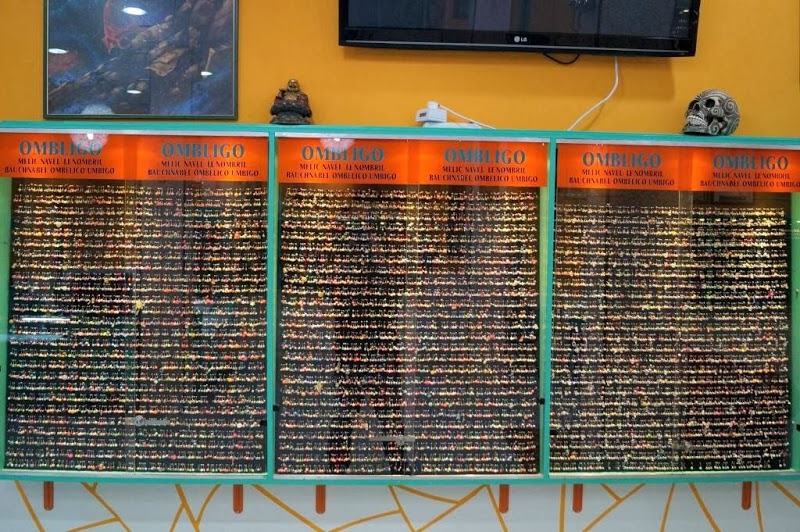 LG
OMBLIGO
MELIC NAVEL LE NOMBRIL
BAUCHNABEL OMBELICO UMBIGO
OMBLIGO
MELIC NAVEL LE NOMBRIL
BAUCHNABEL OMBELICO UMBIGO
OMBLIGO
MELIC NAVEL LE NOMBRIL
BAUCHNABEL OMBELICO UMBIGO
OMBLIGO
MELIC NAVEL LE NOMBRIL
BAUCHNABEL OMBELICO UMBIGO
OMBLIGO
MELIC NAVEL LE NOMBRIL
BAUCHNABEL OMBELICO UMBIGO
OMBLIGO
MELIC NAVEL LE NOMBRIL
BAUCHNABEL OMBELICO UMBIGO